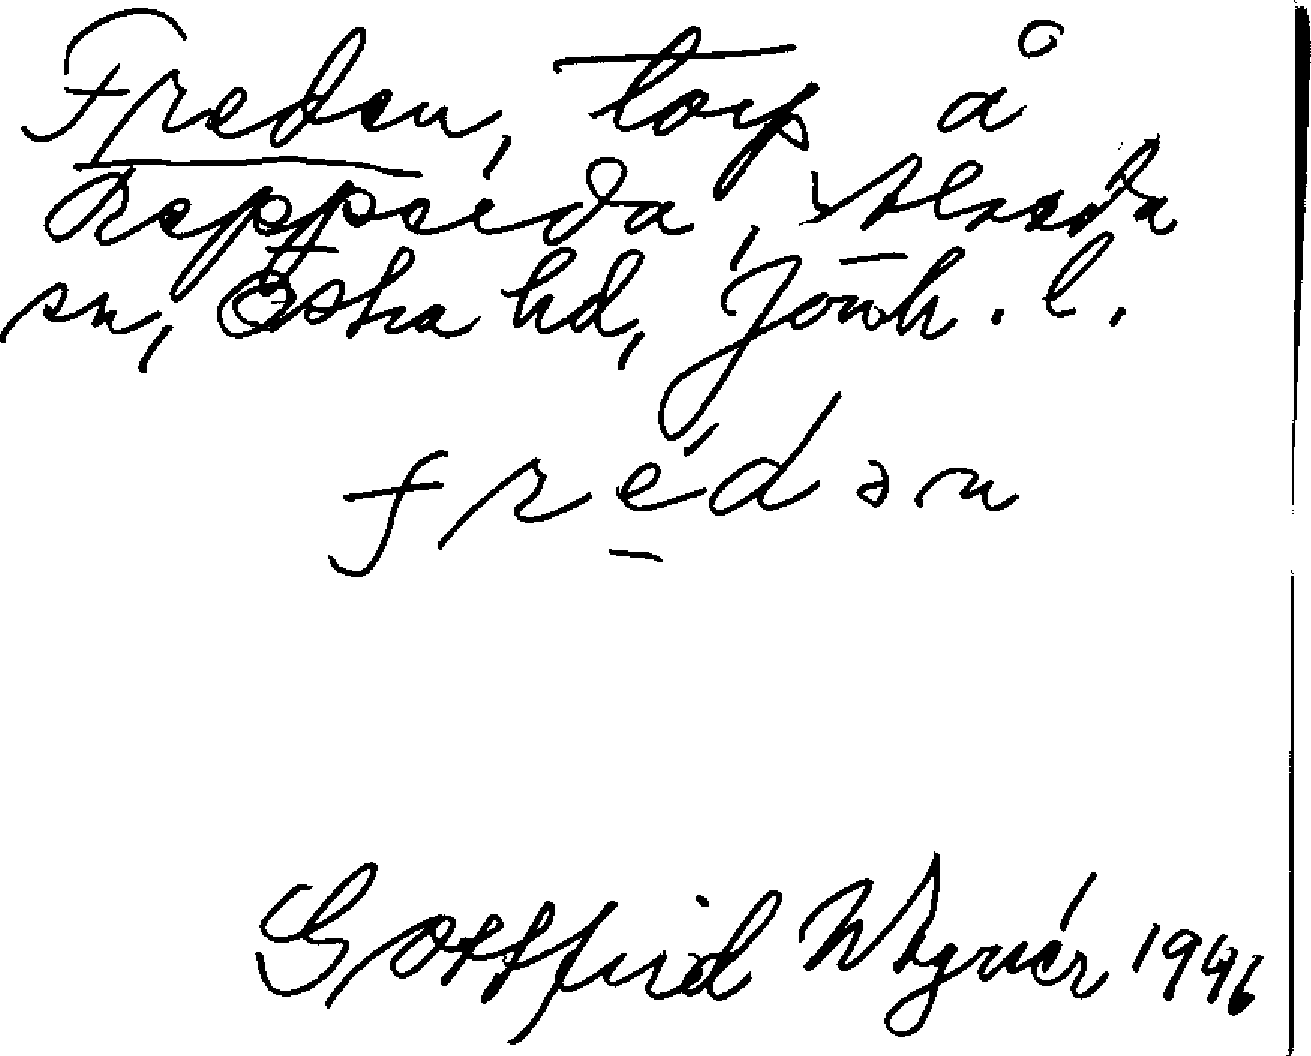 Freden, torp å
Repperda, Alseda
sn, Östra hd, Jönk. l.
fredən
Gottfrid Wagnér 1946